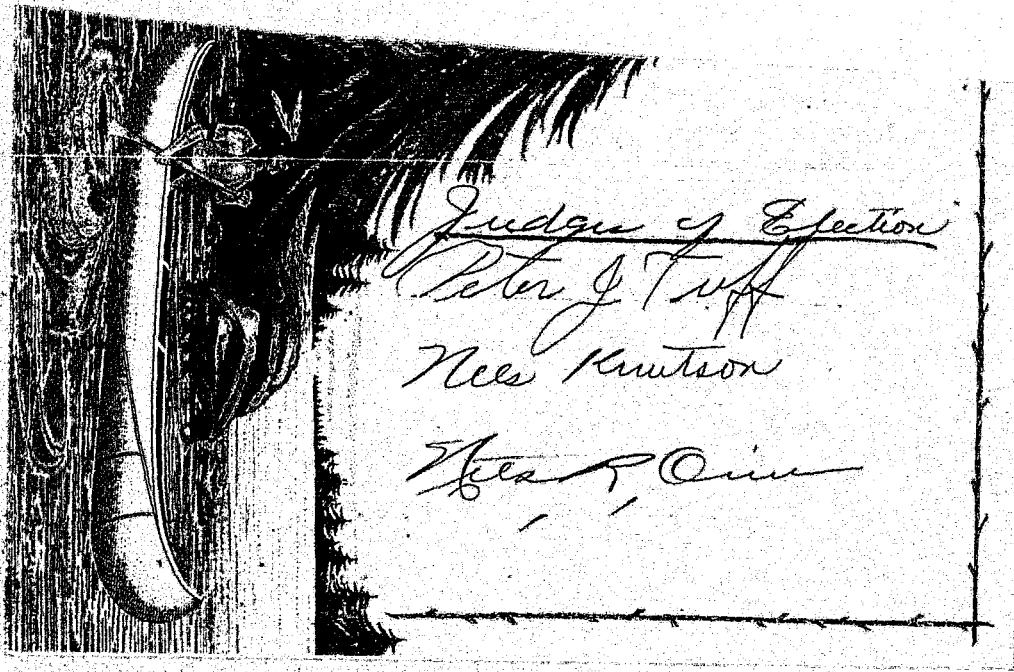 Judges of Election
Peter J Tuff
Nels Knutson
Nels R